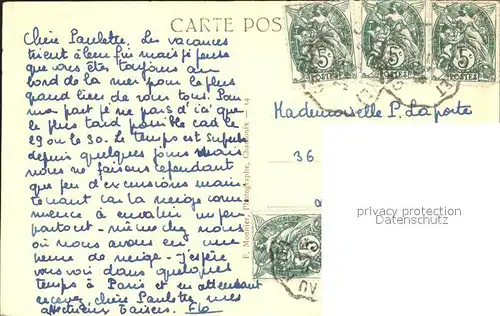 CARTE POS
Chère Paulette, Les vacances
tirent à leur fin mais je pense
que vous êtes toujours au
bord de la mer pour le plus
grand bien de vous tous. Pour
ma part je ne pars d'ici que
le plus tard possible càd le
29 ou le 30. Le temps est superbe
depuis quelques jours mais
nous ne faisons cependant
que peu d'excursions main-
tenant car la neige com-
mence à envahir un peu
partout - même chez nous
où nous avons eu une
heure de neige - J'espère
vous voir dans quelques
temps à Paris et en attendant
recevez, chère Paulette, mes
affectueux baisers. Flo
F. Monnier, Photographe, Chamonix - 14
5c
POSTES
5c
POSTES
5c
POSTES
Mademoiselle P. Laporte
36
privacy protection
Datenschutz
5c